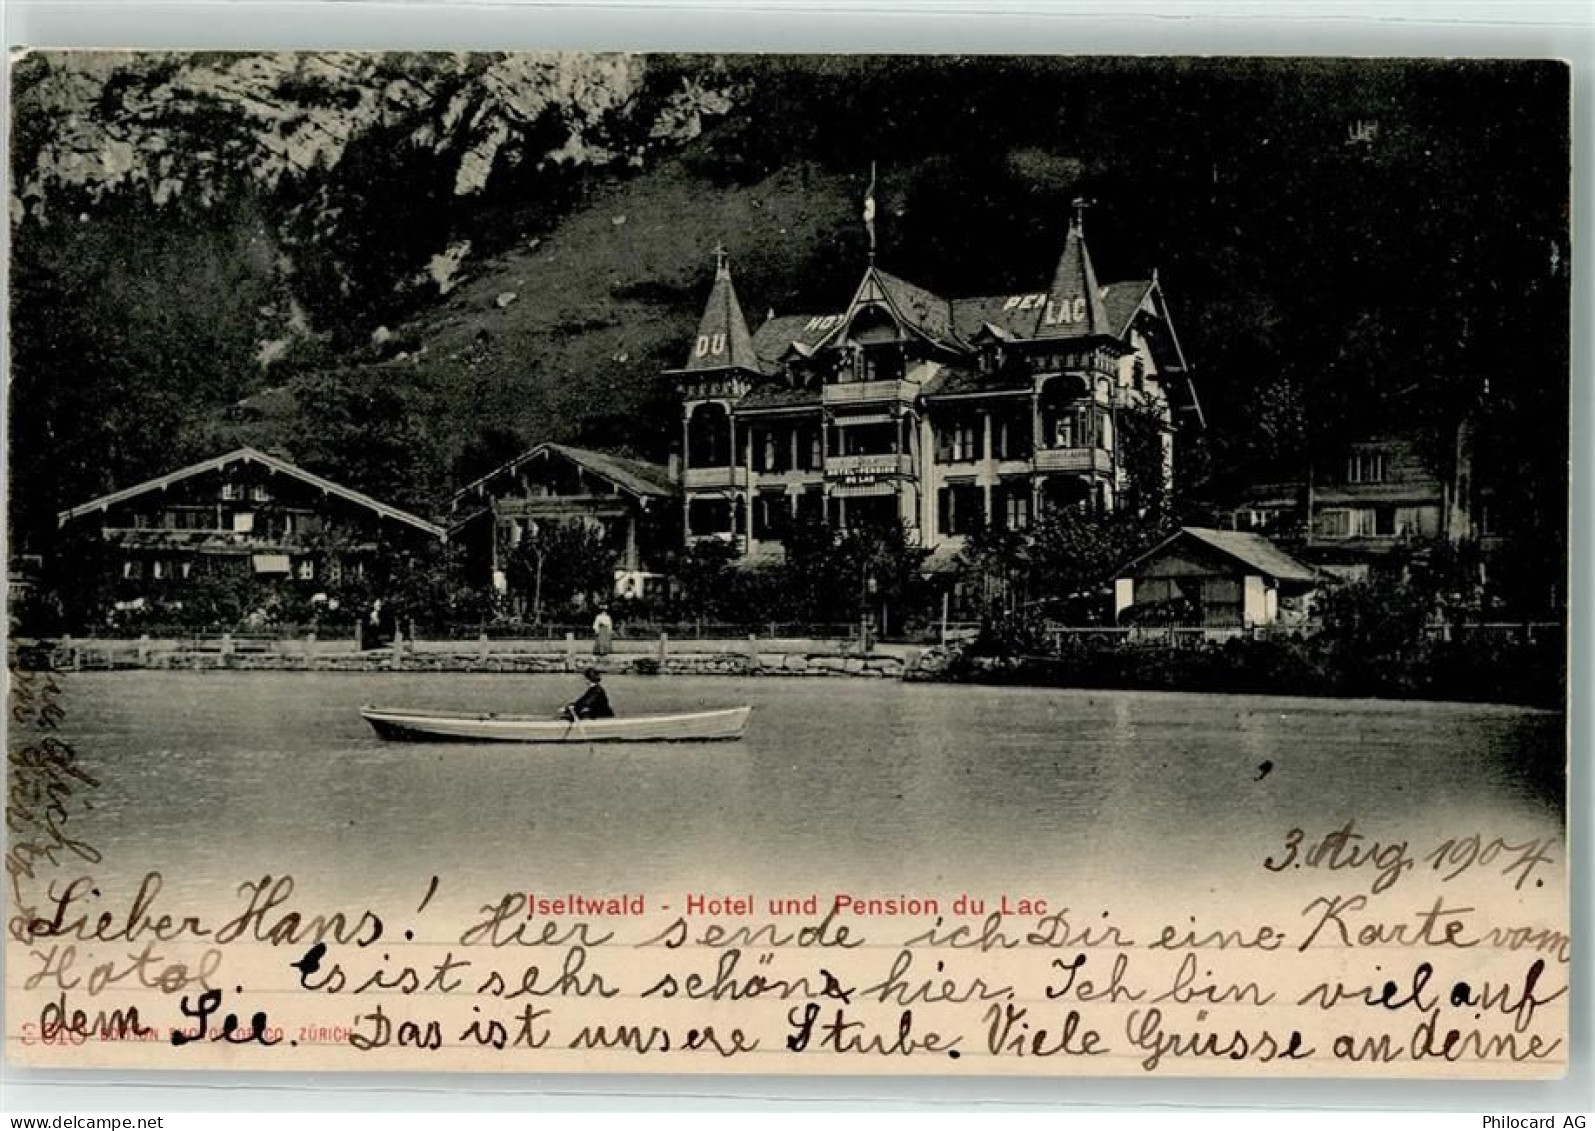 DU
LAC
HOTEL-PENSION
DU LAC
3. Aug. 1904.
Iseltwald - Hotel und Pension du Lac
Lieber Hans! Hier sende ich Dir eine Karte vom
Hotel. Es ist sehr schön hier. Ich bin viel auf
dem See. Das ist unsere Stube. Viele Grüsse an deine
EDITION PHOTOGLOB CO. ZÜRICH
Philocard AG